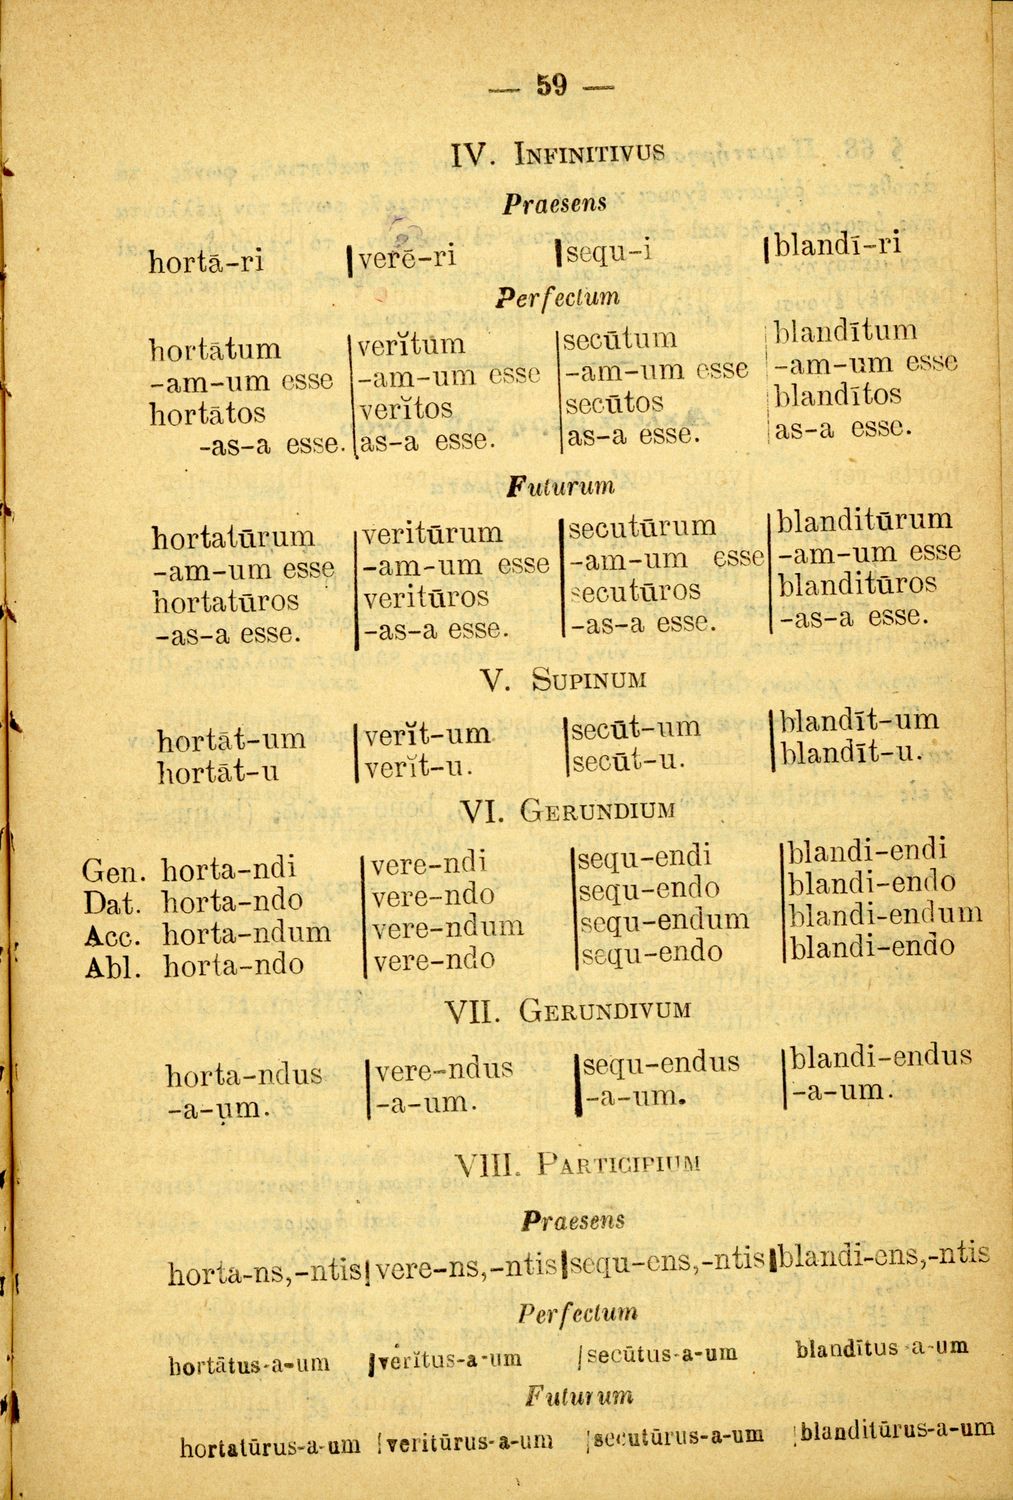 — 59 —
IV. INFINITIVUS
Praesens
hortā-ri verē-ri sequ-i blandī-ri
Perfectum
hortātum verĭtum secūtum blandītum
-am-um esse -am-um esse -am-um esse -am-um esse
hortātos verĭtos secūtos blandītos
-as-a esse. as-a esse. as-a esse. as-a esse.
Futurum
hortatūrum veritūrum secutūrum blanditūrum
-am-um esse -am-um esse -am-um esse -am-um esse
hortatūros veritūros secutūros blanditūros
-as-a esse. -as-a esse. -as-a esse. -as-a esse.
V. SUPINUM
hortāt-um verĭt-um secūt-um blandīt-um
hortāt-u verĭt-u. secūt-u. blandīt-u.
VI. GERUNDIUM
Gen. horta-ndi vere-ndi sequ-endi blandi-endi
Dat. horta-ndo vere-ndo sequ-endo blandi-endo
Acc. horta-ndum vere-ndum sequ-endum blandi-endum
Abl. horta-ndo vere-ndo sequ-endo blandi-endo
VII. GERUNDIVUM
horta-ndus vere-ndus sequ-endus blandi-endus
-a-um. -a-um. -a-um. -a-um.
VIII. PARTICIPIUM
Praesens
horta-ns,-ntis vere-ns,-ntis sequ-ens,-ntis blandi-ens,-ntis
Perfectum
hortātus-a-um verĭtus-a-um secūtus-a-um blandītus-a-um
Futurum
hortatūrus-a-um veritūrus-a-um secutūrus-a-um blanditūrus-a-um